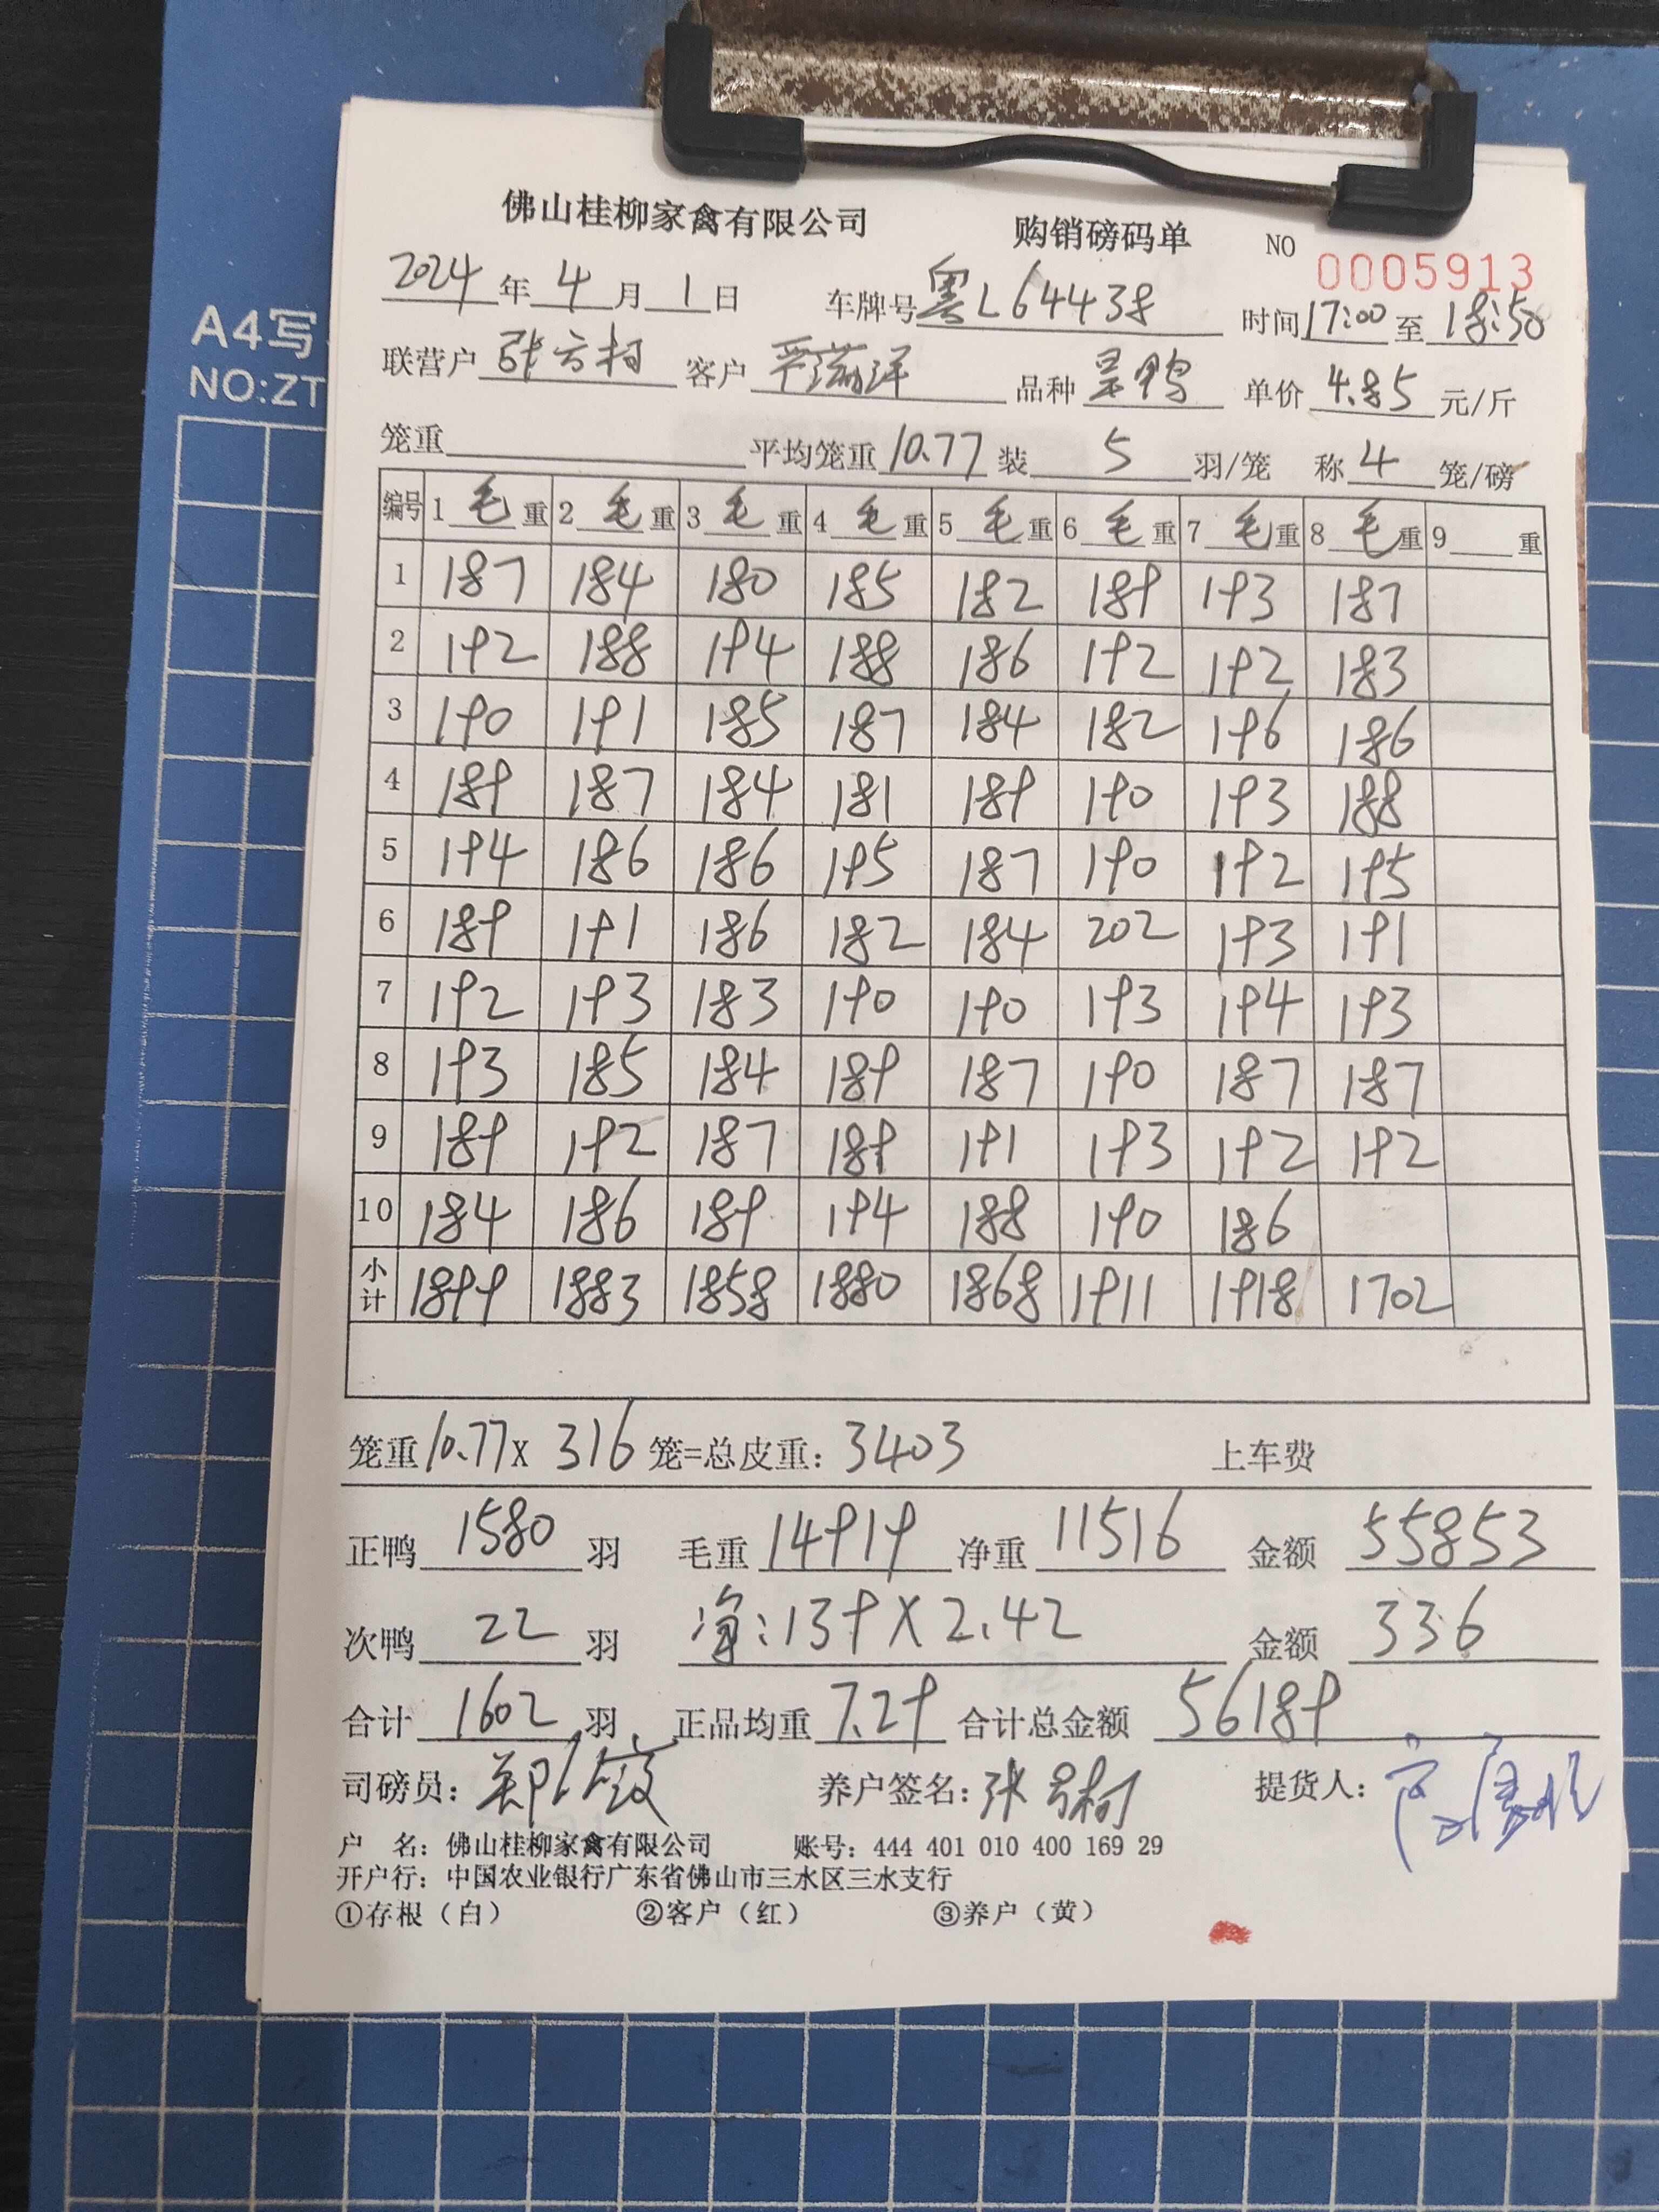 A4写
NO:ZT
佛山桂柳家禽有限公司 购销磅码单 NO 0005913
2024年4月1日 车牌号粤L64438 时间17:00至18:50
联营户 客户 品种 单价4.85元/斤
笼重 平均笼重10.77装5羽/笼 称4笼/磅
编号 1毛重 2毛重 3毛重 4毛重 5毛重 6毛重 7毛重 8毛重 9重
1 187 184 180 185 182 189 193 187
2 192 188 194 188 186 192 192 183
3 190 191 185 187 184 182 196 186
4 189 187 184 181 189 190 193 188
5 194 186 186 195 187 190 192 195
6 189 191 186 182 184 202 193 191
7 192 193 183 190 190 193 194 193
8 193 185 184 189 187 190 187 187
9 189 192 187 189 191 193 192 192
10 184 186 189 194 188 190 186
小计 1899 1883 1858 1880 1868 1911 1918 1702
笼重10.77x316笼=总皮重:3403 上车费
正鸭1580羽 毛重14919净重11516 金额55853
次鸭22羽 净:139X2.42 金额336
合计1602羽 正品均重7.29合计总金额56189
司磅员: 养户签名: 提货人:
户 名: 佛山桂柳家禽有限公司 账号: 444 401 010 400 169 29
开户行: 中国农业银行广东省佛山市三水区三水支行
①存根(白) ②客户(红) ③养户(黄)